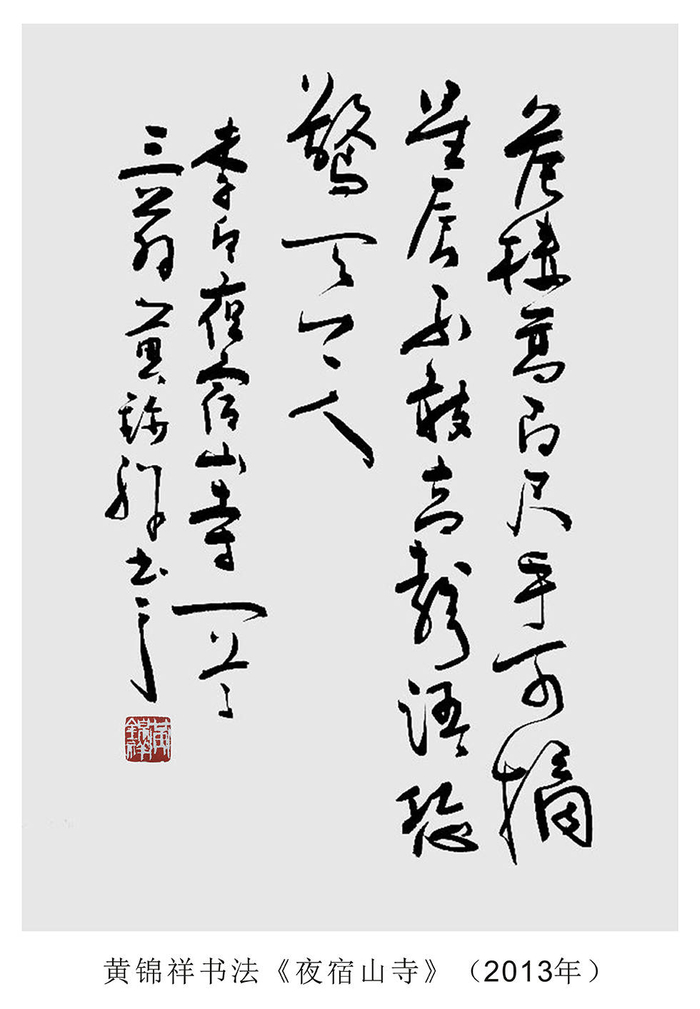 危樓高百尺手可摘
星辰不敢高聲語恐
驚天上人
李白夜宿山寺一首
黄錦祥书
黄錦祥
黄锦祥书法《夜宿山寺》（2013年）